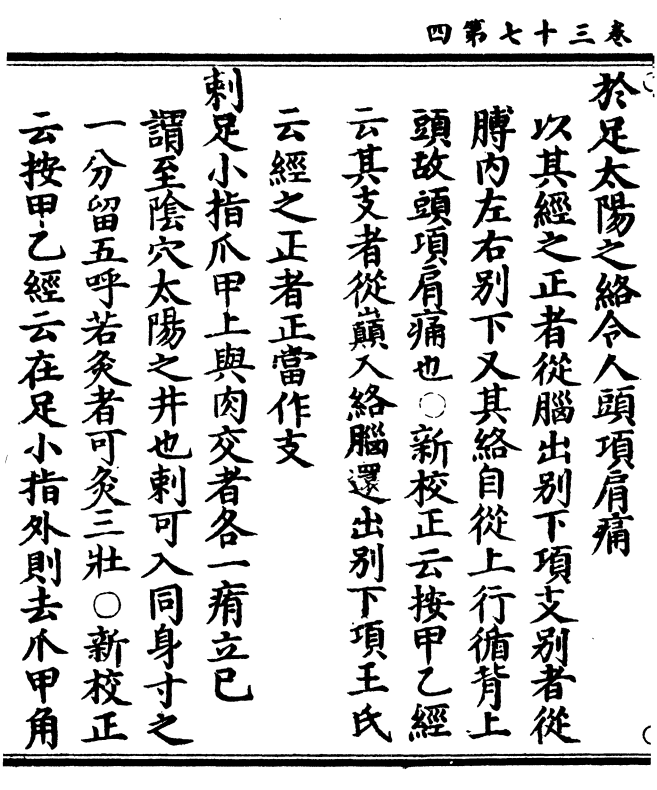 卷三十七第四
於足太陽之絡令人頭項肩痛
以其經之正者從腦出別下項支別者從
膊內左右別下又其絡自從上行循背上
頭故頭項肩痛也○新校正云按甲乙經
云其支者從巔入絡腦還出別下項王氏
云經之正者正當作支
刺足小指爪甲上與肉交者各一痏立已
謂至陰穴太陽之井也刺可入同身寸之
一分留五呼若灸者可灸三壯○新校正
云按甲乙經云在足小指外則去爪甲角